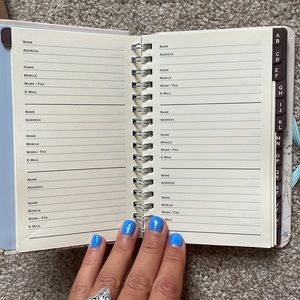 Name
Address
Home
Mobile
Work / Fax
E-Mail
Name
Address
Home
Mobile
Work / Fax
E-Mail
Name
Address
Home
Mobile
Work / Fax
E-Mail
Name
Address
Home
Mobile
Work / Fax
E-Mail
Name
Address
Home
Mobile
Work / Fax
E-Mail
Name
Address
Home
Mobile
Work / Fax
E-Mail
AB
CD
EF
GH
IJ
KL
MN